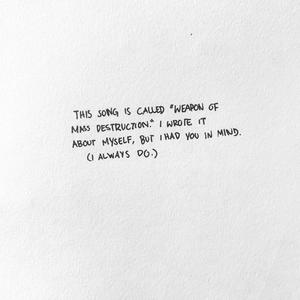 THIS SONG IS CALLED "WEAPON OF
MASS DESTRUCTION." I WROTE IT
ABOUT MYSELF, BUT I HAD YOU IN MIND.
(I ALWAYS DO.)